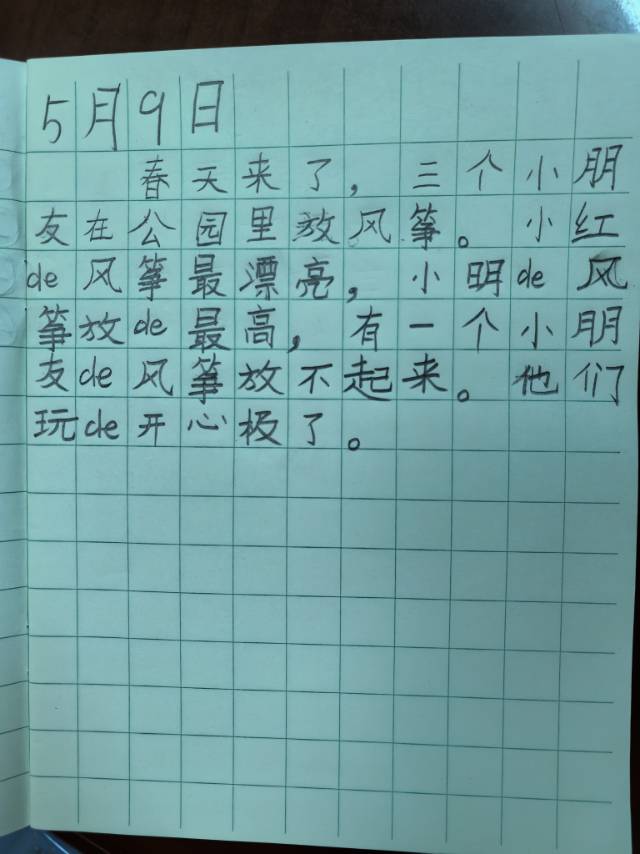 5月9日
春天来了，三个小朋
友在公园里放风筝。小红
de风筝最漂亮，小明de风
筝放de最高，有一个小朋
友de风筝放不起来。他们
玩de开心极了。